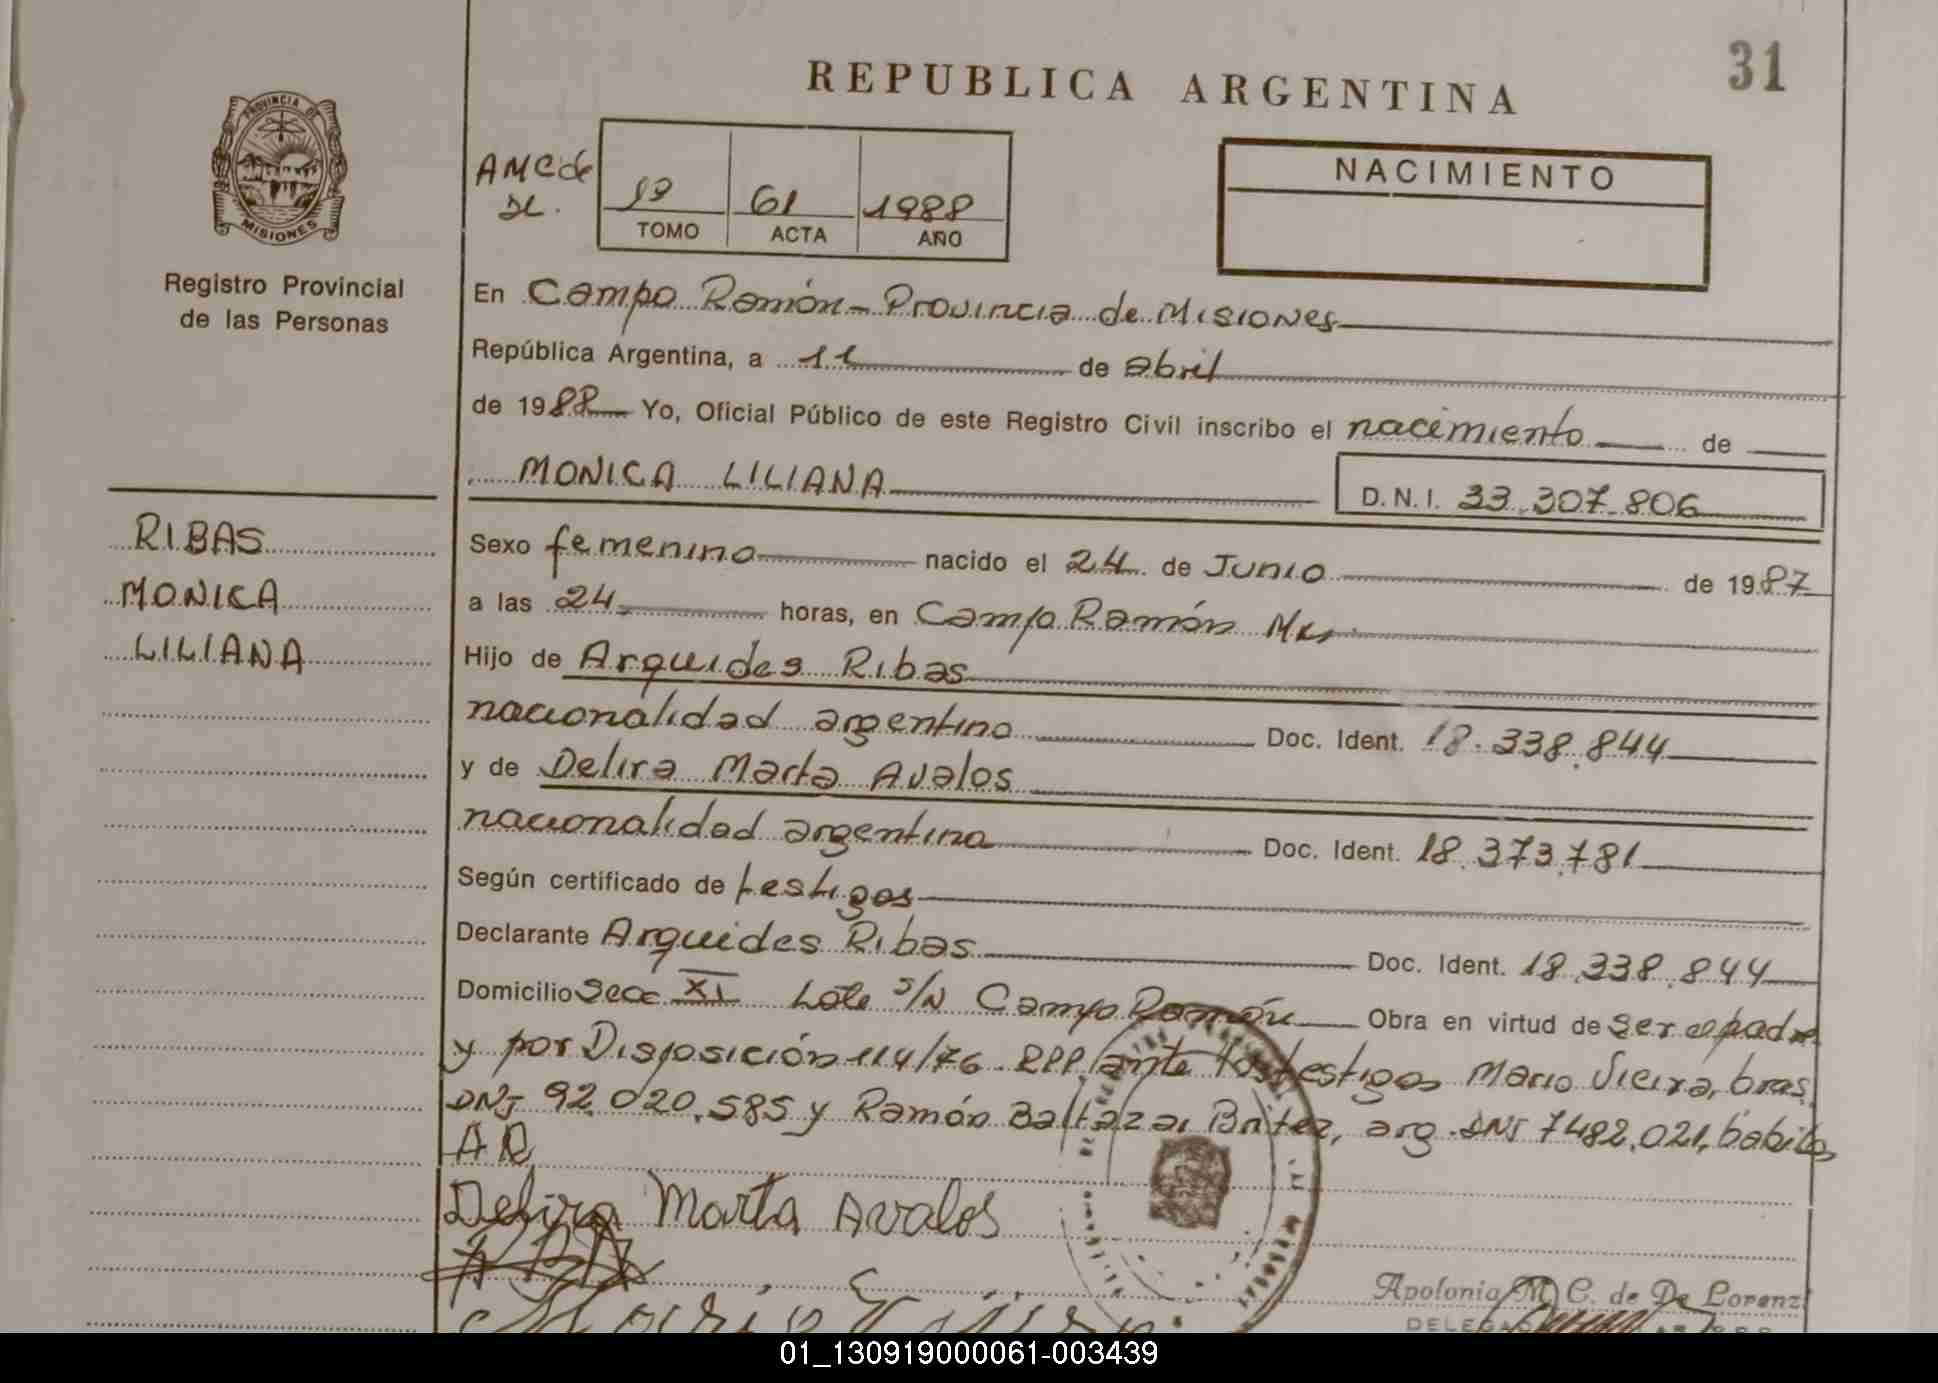 31
REPUBLICA ARGENTINA
PROVINCIA DE
MISIONES
Registro Provincial
de las Personas
AMC de
DL.
19 61 1988
TOMO ACTA AÑO
NACIMIENTO
En Campo Ramón - Provincia de Misiones
República Argentina, a 11 de abril
de 1988 Yo, Oficial Público de este Registro Civil inscribo el nacimiento de
MONICA LILIANA D.N.I. 33.307.806
RIBAS
MONICA
LILIANA
Sexo femenino nacido el 24 de Junio de 1987
a las 24 horas, en Campo Ramón Mns
Hijo de Arquides Ribas
nacionalidad argentino Doc. Ident. 18.338.844
y de Delira Marta Avalos
nacionalidad argentina Doc. Ident. 18.373.781
Según certificado de testigos
Declarante Arquides Ribas Doc. Ident. 18.338.844
Domicilio Secc XI Lote S/N Campo Ramón Obra en virtud de ser el padre
y por Disposición 114/76 RPP/ante los testigos Mario Vieira, bras.
DNI 92.020.585 y Ramón Baltazar Britez, arg. DNI 7482.021,
AR
Delira Marta Avalos
Apolonia M. C. de De Lorenzi
01_130919000061-003439